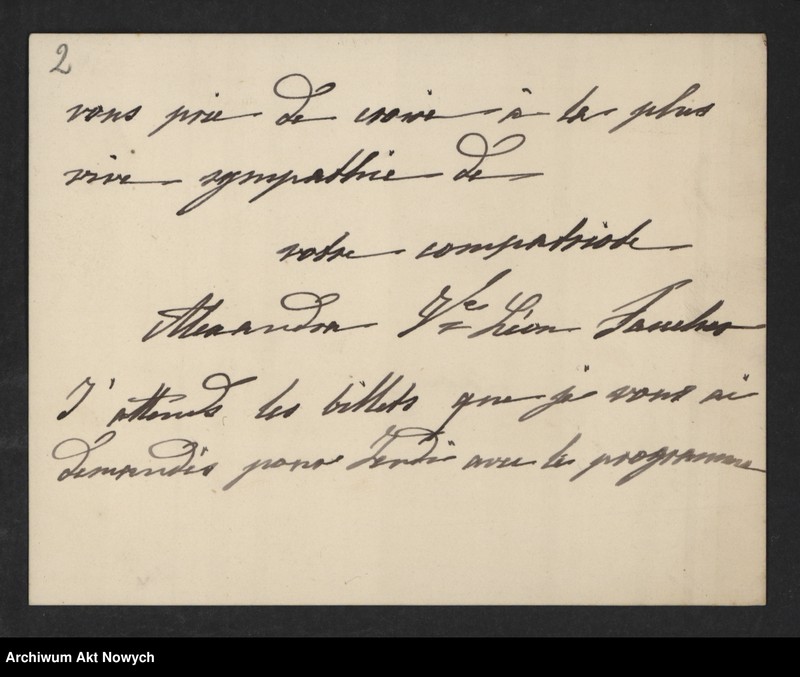 2
vous prie de croire à la plus
vive sympathie de
votre compatriote
Alexandra Vve Léon Faucher
J'attends les billets que je vous ai
demandés pour Jeudi avec le programme
Archiwum Akt Nowych